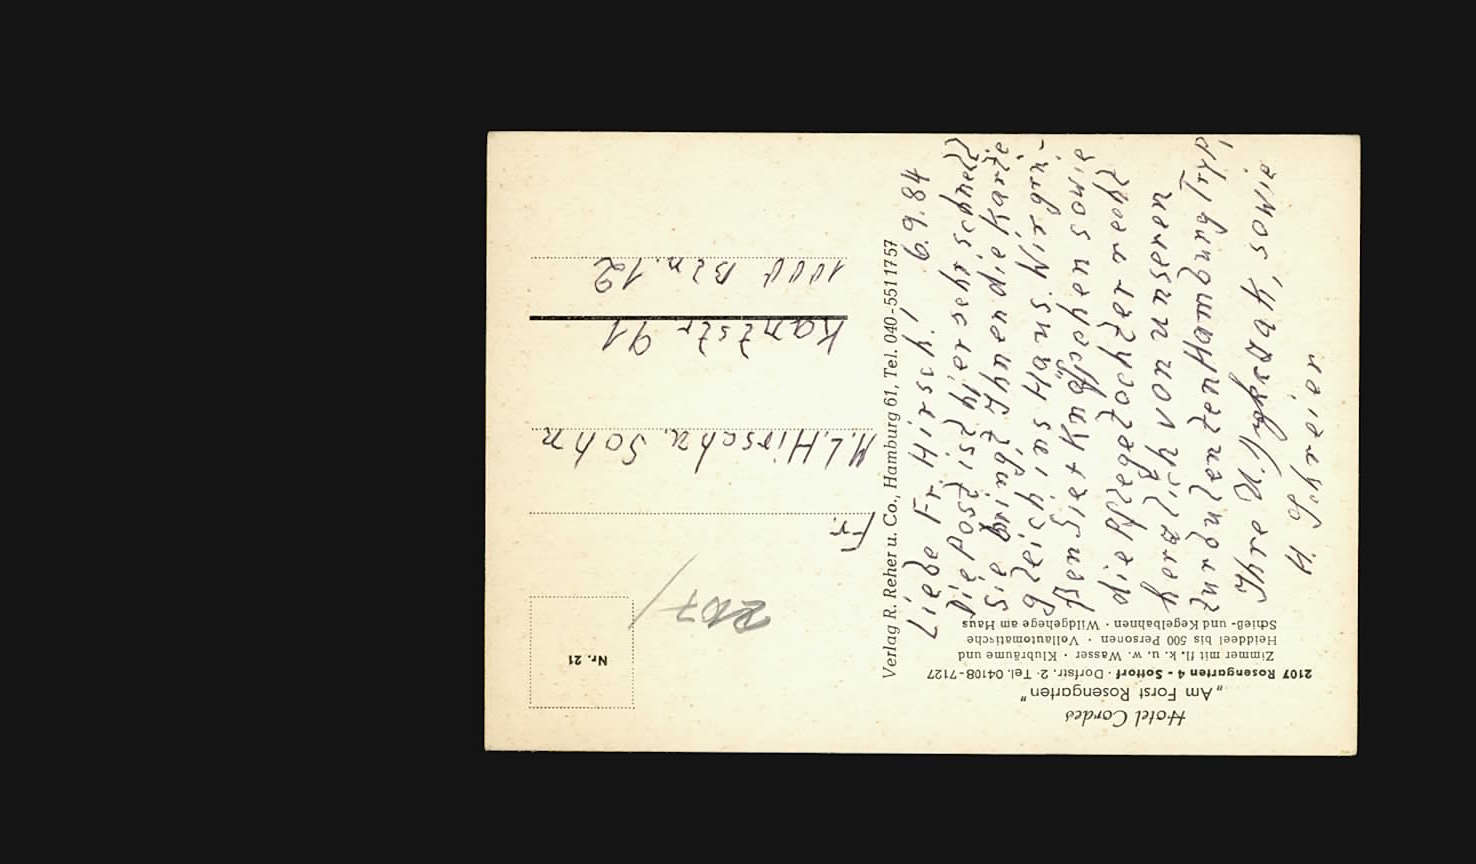 Hotel Cordes
„Am Forst Rosengarten"
2107 Rosengarten 4 - Sottorf · Dorfstr. 2 · Tel. 04108-7127
Zimmer mit fl. k. u. w. Wasser · Klubräume und
Heiddeel bis 500 Personen · Vollautomatische
Schieß- und Kegelbahnen · Wildgehege am Haus
Liebe Fr. Hirsch! 6.9.84
Die Post ist hier sehr schnell
Sie bringt Ihnen die Karte
gleich ins Haus. Wir grü-
ßen Sie + sowie
die Pflegetochter recht
herzlich von unseren
Ihre sowie
H. Schreier
Verlag R. Reher u. Co., Hamburg 61, Tel. 040-551 17 57
Nr. 21
207/
Fr.
M.L. Hirsch u. Sohn
Kantstr. 91
1000 Bln. 12